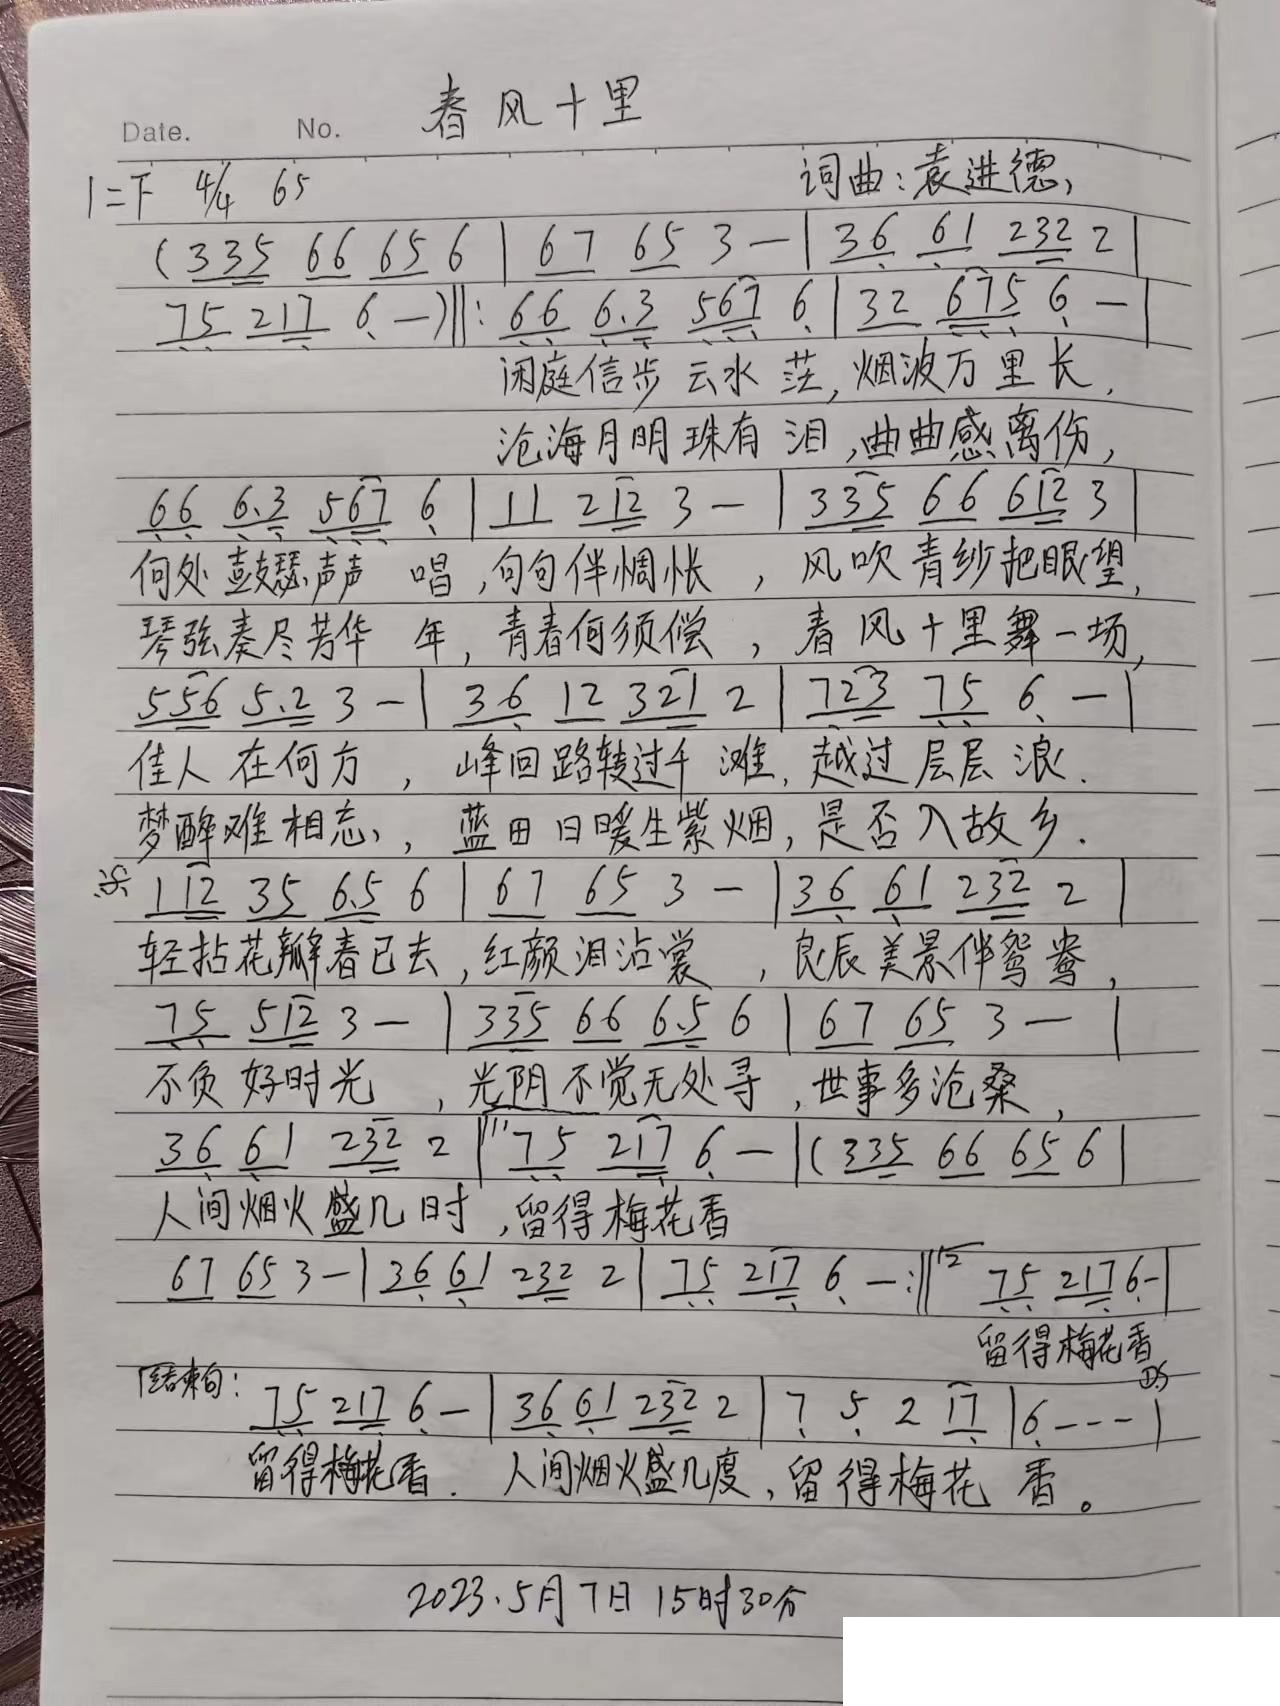 春风十里
Date. No.
1=F 4/4 65 词曲:袁进德
(335 66 65 6 | 67 65 3 — | 36 61 232 2 |
75 217 6 —)‖: 66 6.3 567 6 | 32 675 6 — |
闲庭信步云水茫,烟波万里长,
沧海月明珠有泪,曲曲感离伤,
66 6.3 567 6 | 11 212 3 — | 335 66 612 3 |
何处鼓瑟声声唱,句句伴惆怅,风吹青纱把眼望,
琴弦奏尽芳华年,青春何须偿,春风十里舞一场,
556 5.2 3 — | 36 12 321 2 | 723 75 6 — |
佳人在何方,峰回路转过千滩,越过层层浪.
梦醉难相忘,蓝田日暖生紫烟,是否入故乡.
112 35 6.5 6 | 67 65 3 — | 36 61 232 2 |
轻拈花瓣春已去,红颜泪沾裳,良辰美景伴鸳鸯,
75 512 3 — | 335 66 6.5 6 | 67 65 3 — |
不负好时光,光阴不觉无处寻,世事多沧桑,
36 61 232 2 ‖ 75 217 6 — | (335 66 65 6 |
人间烟火盛几时,留得梅花香
67 65 3 — | 36 61 232 2 | 75 217 6 — :‖ 75 217 6 — |
留得梅花香
D.S
结束句: 75 217 6 — | 36 61 232 2 | 7 5 2 17 | 6 - - - |
留得梅花香. 人间烟火盛几度,留得梅花香。
2023.5月7日 15时30分